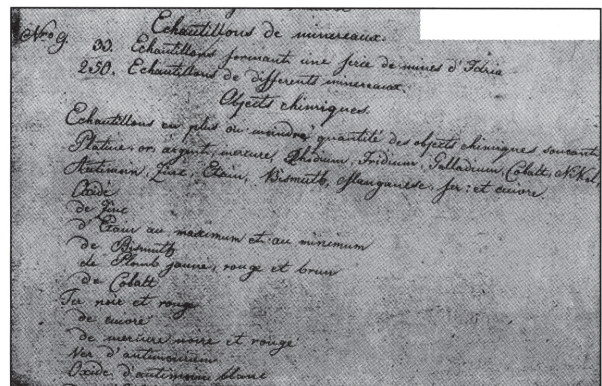 Echantillons de minereaux.
Nro 9.
33. Echantillons formants une serie de mines d'Idria
250. Echantillons de differents minereaux.
Objects chimiques.
Echantillons en plus ou moindre quantité des objects chimiques suivants,
Platine, or, argent, mercure, Rhodium, Iridium, Palladium, Cobalt, Nikel,
Antimoin, Zinc, Etain, Bismuth, Manganese, fer: et cuivre.
Oxide
de Zinc
d'Etain au maximum et au minimum
de Bismuth
de Plomb jaune, rouge et brun
de Cobalt
Fer noir et rouge
de cuivre
de mercure noire et rouge
Ver d'antimonium
Oxide d'antimoine blanc